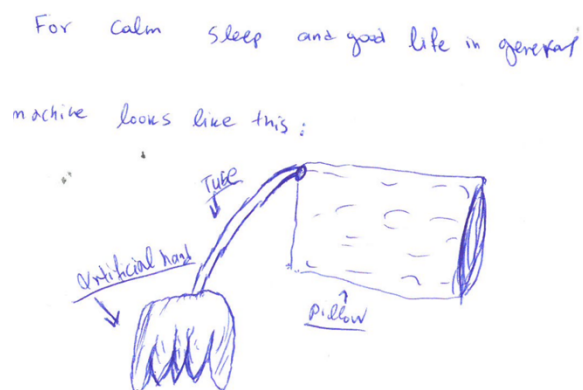 For calm sleep and good life in general
machine looks like this:
Tube
artificial hand
pillow